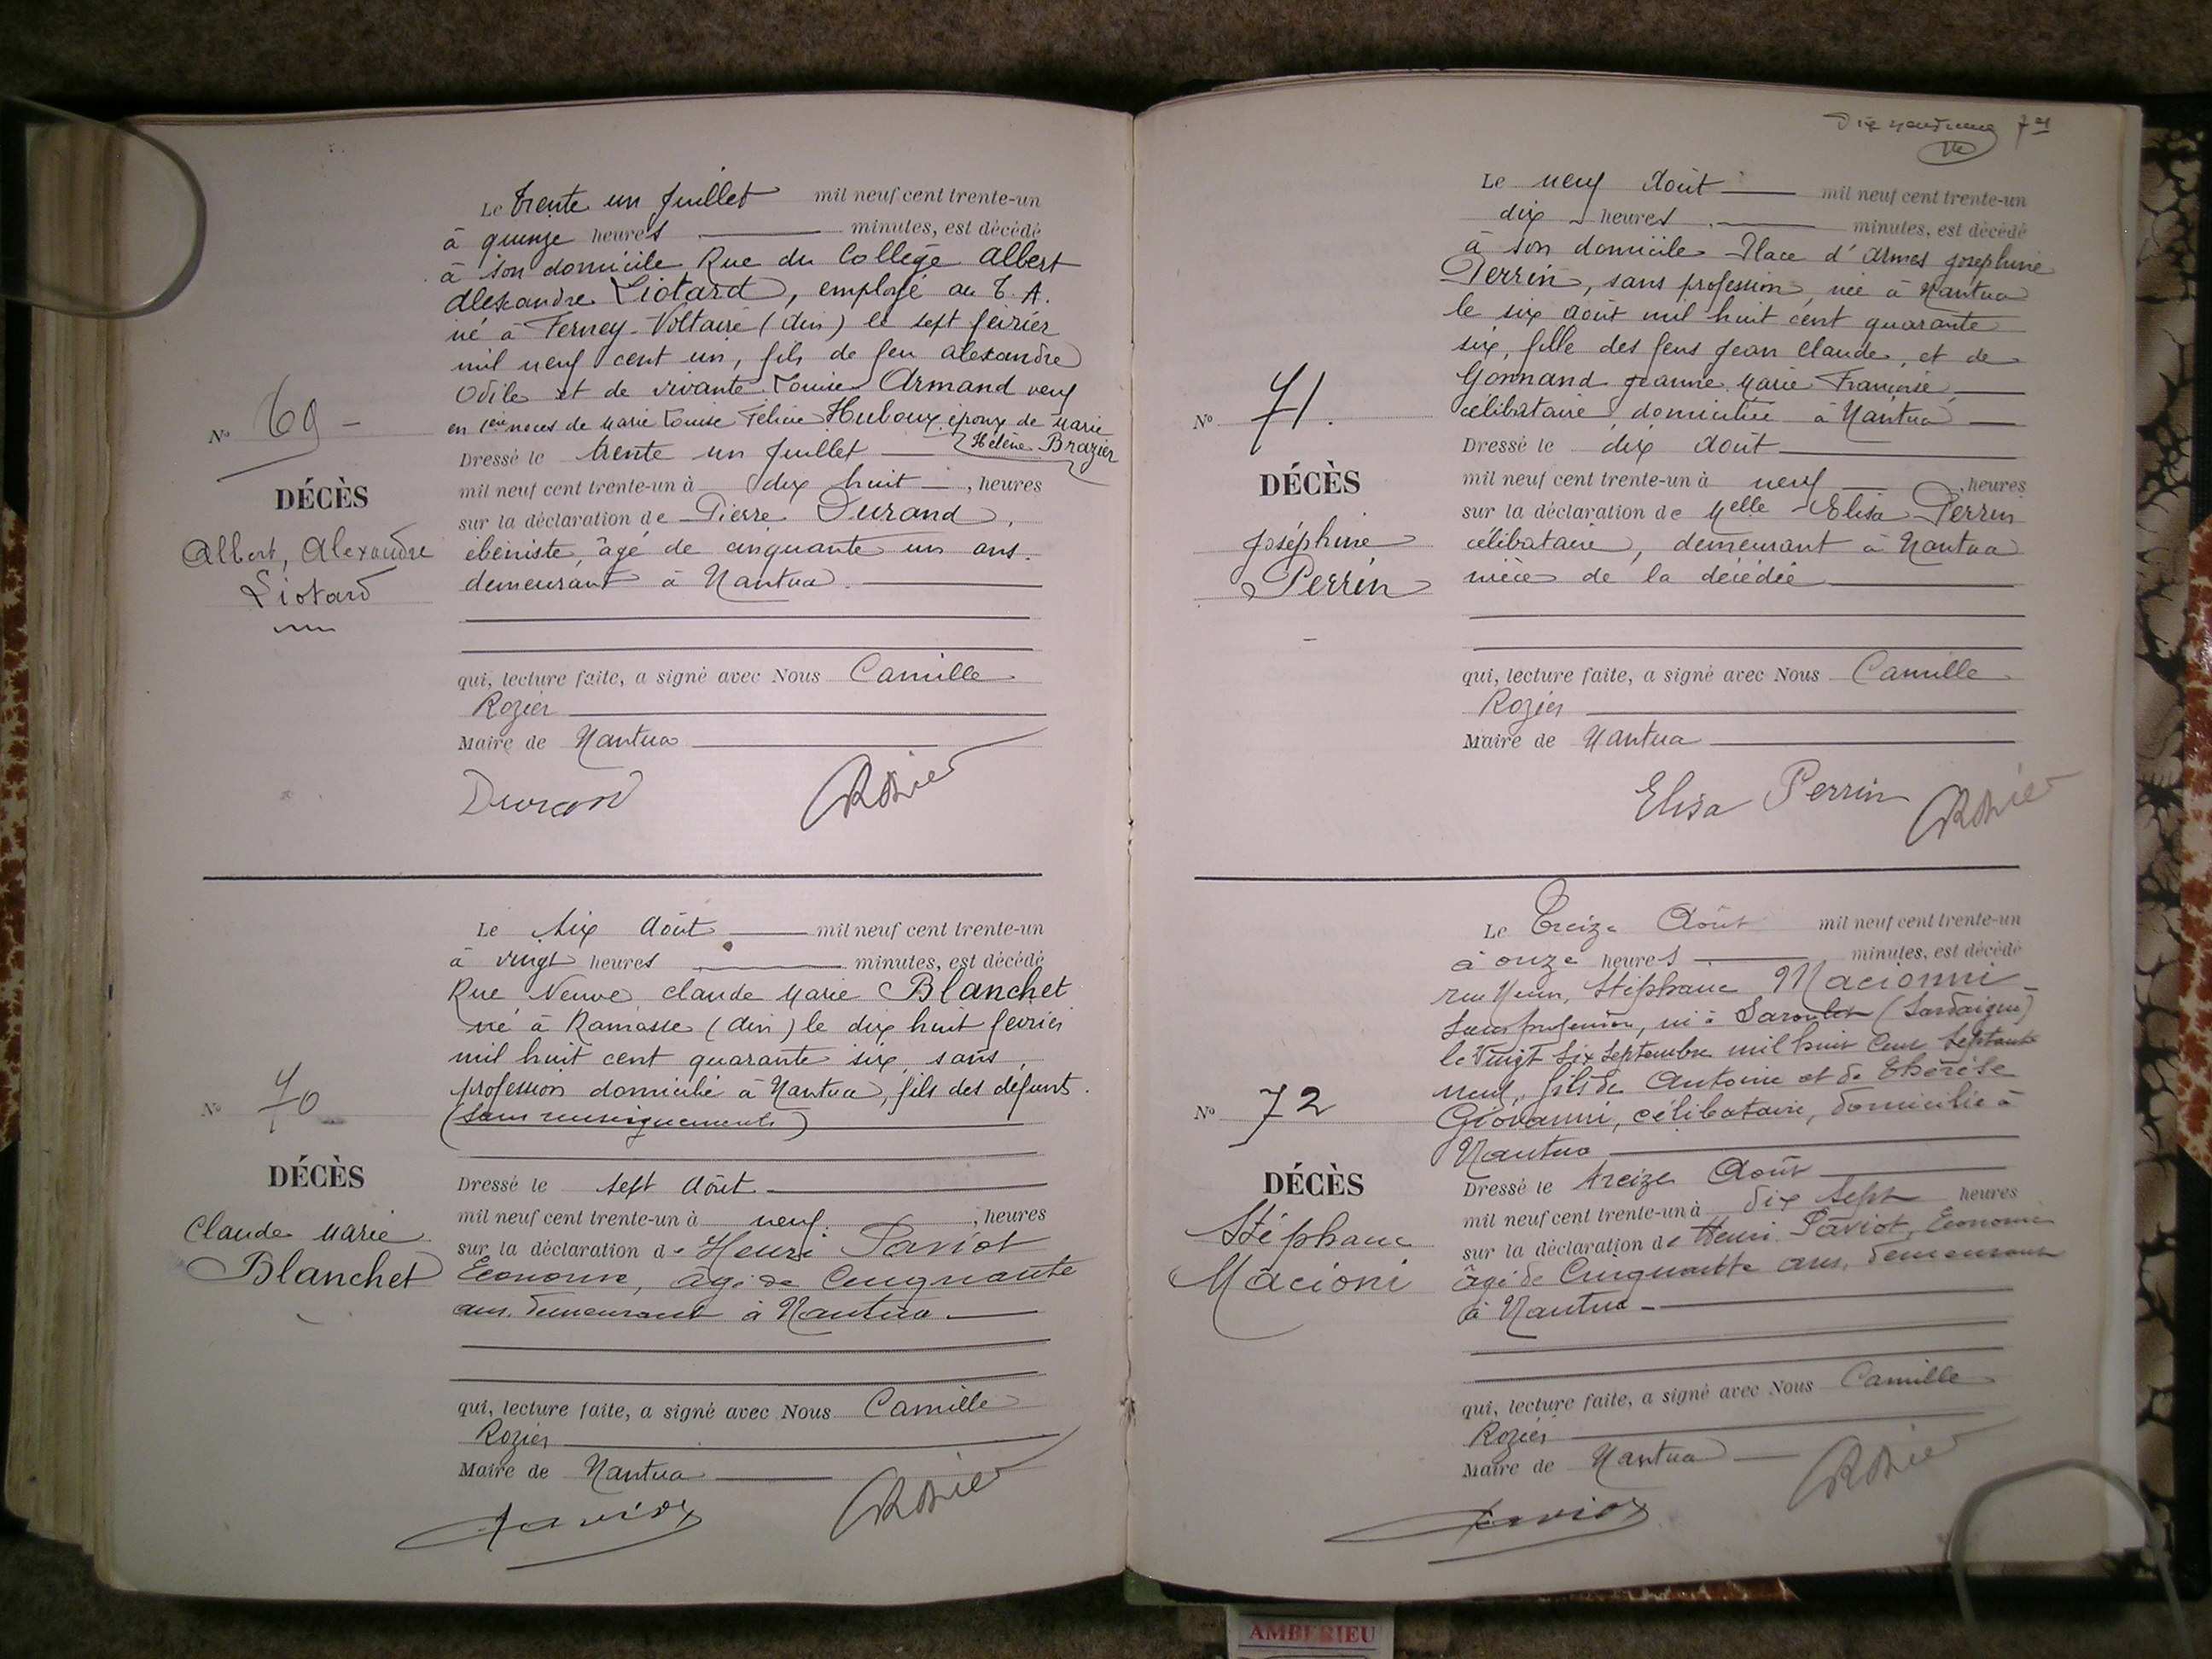 Le trente un Juillet mil neuf cent trente-un
à quinze heures minutes, est décédé
à son domicile Rue du Collège Albert
Alexandre Liotard, employé au T. A.
né à Ferney-Voltaire (Ain) le sept février
mil neuf cent un, fils de feu Alexandre
Odile et de vivante Louise Armand veuf
en 1ères noces de Marie Louise Félicie Huboux époux de Marie
Hélène Brazier
Nº 69
Dressé le trente un Juillet
mil neuf cent trente-un à dix huit, heures
DÉCÈS
sur la déclaration de Pierre Durand,
Albert, Alexandre
ébéniste, âgé de cinquante un ans.
Liotard
demeurant à Nantua.
qui, lecture faite, a signé avec Nous Camille
Rozier
Maire de Nantua
Durand Rozier
Le six Août mil neuf cent trente-un
à vingt heures minutes, est décédé
Rue Neuve Claude Marie Blanchet
né à Ramasse (Ain) le dix huit février
mil huit cent quarante six, sans
profession domicilié à Nantua, fils des défunts.
Nº 70
(sans renseignements)
DÉCÈS
Dressé le sept Août
mil neuf cent trente-un à neuf, heures
Claude Marie
sur la déclaration de Henri Paviot
Blanchet
Econome, âgé de Cinquante
ans, demeurant à Nantua
qui, lecture faite, a signé avec Nous Camille
Rozier
Maire de Nantua
Paviot Rozier
74
Le neuf Août mil neuf cent trente-un
dix heures minutes, est décédé
à son domicile Place d'Armes Joséphine
Perrin, sans profession, née à Nantua
le six août mil huit cent quarante
six, fille des feus Jean Claude, et de
Gonnand Jeanne Marie Françoise,
Nº 71.
célibataire, domiciliée à Nantua
Dressé le dix Août
DÉCÈS
mil neuf cent trente-un à neuf, heures
sur la déclaration de Melle Elisa Perrin
Joséphine
célibataire, demeurant à Nantua
Perrin
nièce de la décédée
qui, lecture faite, a signé avec Nous Camille
Rozier
Maire de Nantua
Elisa Perrin Rozier
Le Treize Août mil neuf cent trente-un
à onze heures minutes, est décédé
rue Neuve, Stéphane Macionni
sans profession, né à (Sardaigne)
le Vingt Six Septembre mil huit Cent Septante
neuf, fils de Antoine et de Thérèse
Nº 72
Giovanni, célibataire, domicilié à
Nantua
DÉCÈS
Dressé le treize Août
mil neuf cent trente-un à dix sept heures
Stéphane
sur la déclaration de Henri Paviot, Econome
Macioni
âgé de Cinquante ans, demeurant
à Nantua
qui, lecture faite, a signé avec Nous Camille
Rozier
Maire de Nantua
Paviot Rozier
AMBERIEU